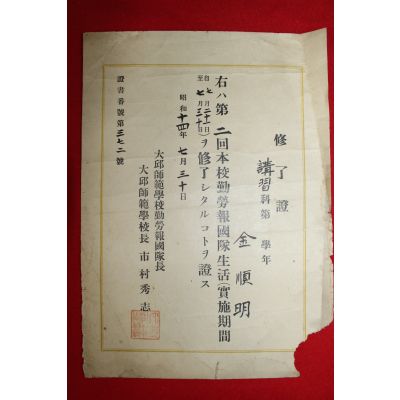 修了證
講習科第 學年
金順明
右ハ第二回本校勤勞報國隊生活(實施期間
自七月二十一日
至七月三十日)ヲ修了シタルコトヲ證ス
昭和十四年七月三十日
大邱師範學校勤勞報國隊長
大邱師範學校長 市村秀志
證書番號第三七二號